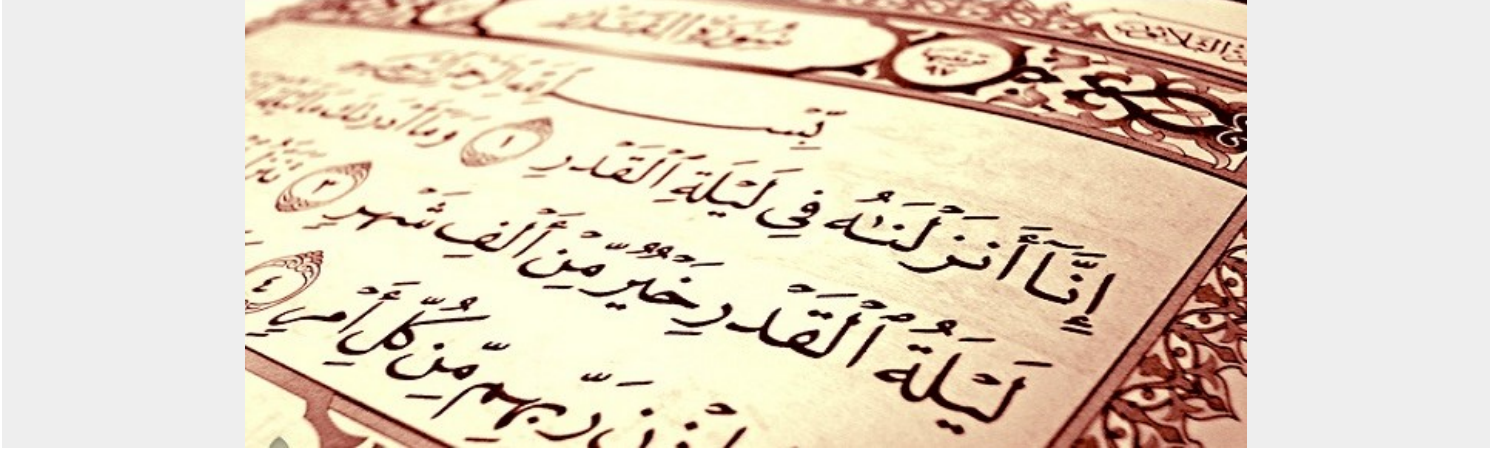 سورة القدر
ترتيبها ٩٧
بِسْمِ ٱللَّهِ ٱلرَّحْمَٰنِ ٱلرَّحِيمِ
إِنَّآ أَنزَلْنَٰهُ فِى لَيْلَةِ ٱلْقَدْرِ ١ وَمَآ أَدْرَىٰكَ مَا لَيْلَةُ
لَيْلَةُ ٱلْقَدْرِ خَيْرٌ مِّنْ أَلْفِ شَهْرٍ ٣ تَنَزَّلُ
رَبِّهِم مِّن كُلِّ أَمْرٍ ٤